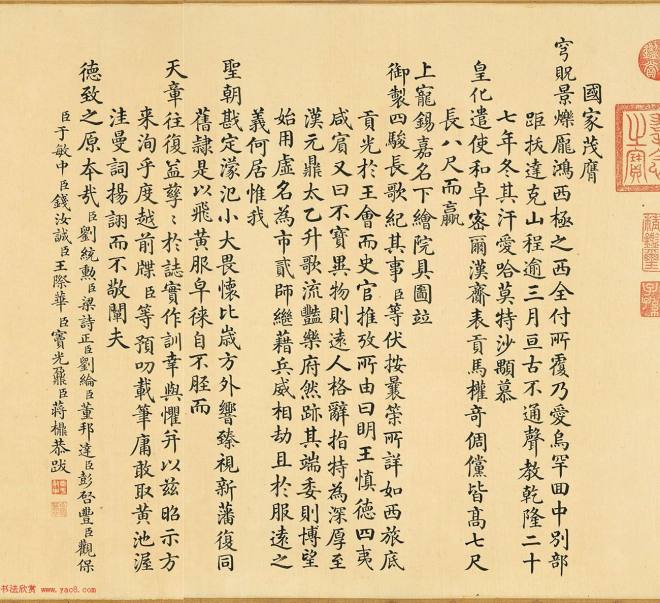 國家茂膺
穹貺景爍厖鴻西極之西全付所覆乃愛烏罕回中別部
距扶達克山程逾三月亘古不通聲教乾隆二十
七年冬其汗愛哈莫特沙顒慕
皇化遣使和卓密爾漢齎表貢馬權奇倜儻皆高七尺
長八尺而贏
上寵錫嘉名下繪院具圖竝
御製四駿長歌紀其事臣等伏按曩策所詳如西旅底
貢光於王會而史官推攷所由曰明王慎德四夷
咸賓又曰不寶異物則遠人格辭指特為深厚至
漢元鼎太乙升歌流豔樂府然跡其端委則博望
始用虛名為市貳師繼藉兵威相劫且於服遠之
義何居惟我
聖朝戡定濛汜小大畏懷比歲方外響臻視新藩復同
舊隸是以飛黃服皁徠自不脛而
天章往復益孳〻於誌實作訓幸與懼并以茲昭示方
來洵乎度越前牒臣等預叨載筆庸敢取黃池渥
洼曼詞揚詡而不敬闡夫
德致之原本哉臣劉統勲臣梁詩正臣劉綸臣董邦達臣彭啓豐臣觀保
臣于敏中臣錢汝誠臣王際華臣竇光鼐臣蔣檙恭跋
书法欣赏 www.yac8.com